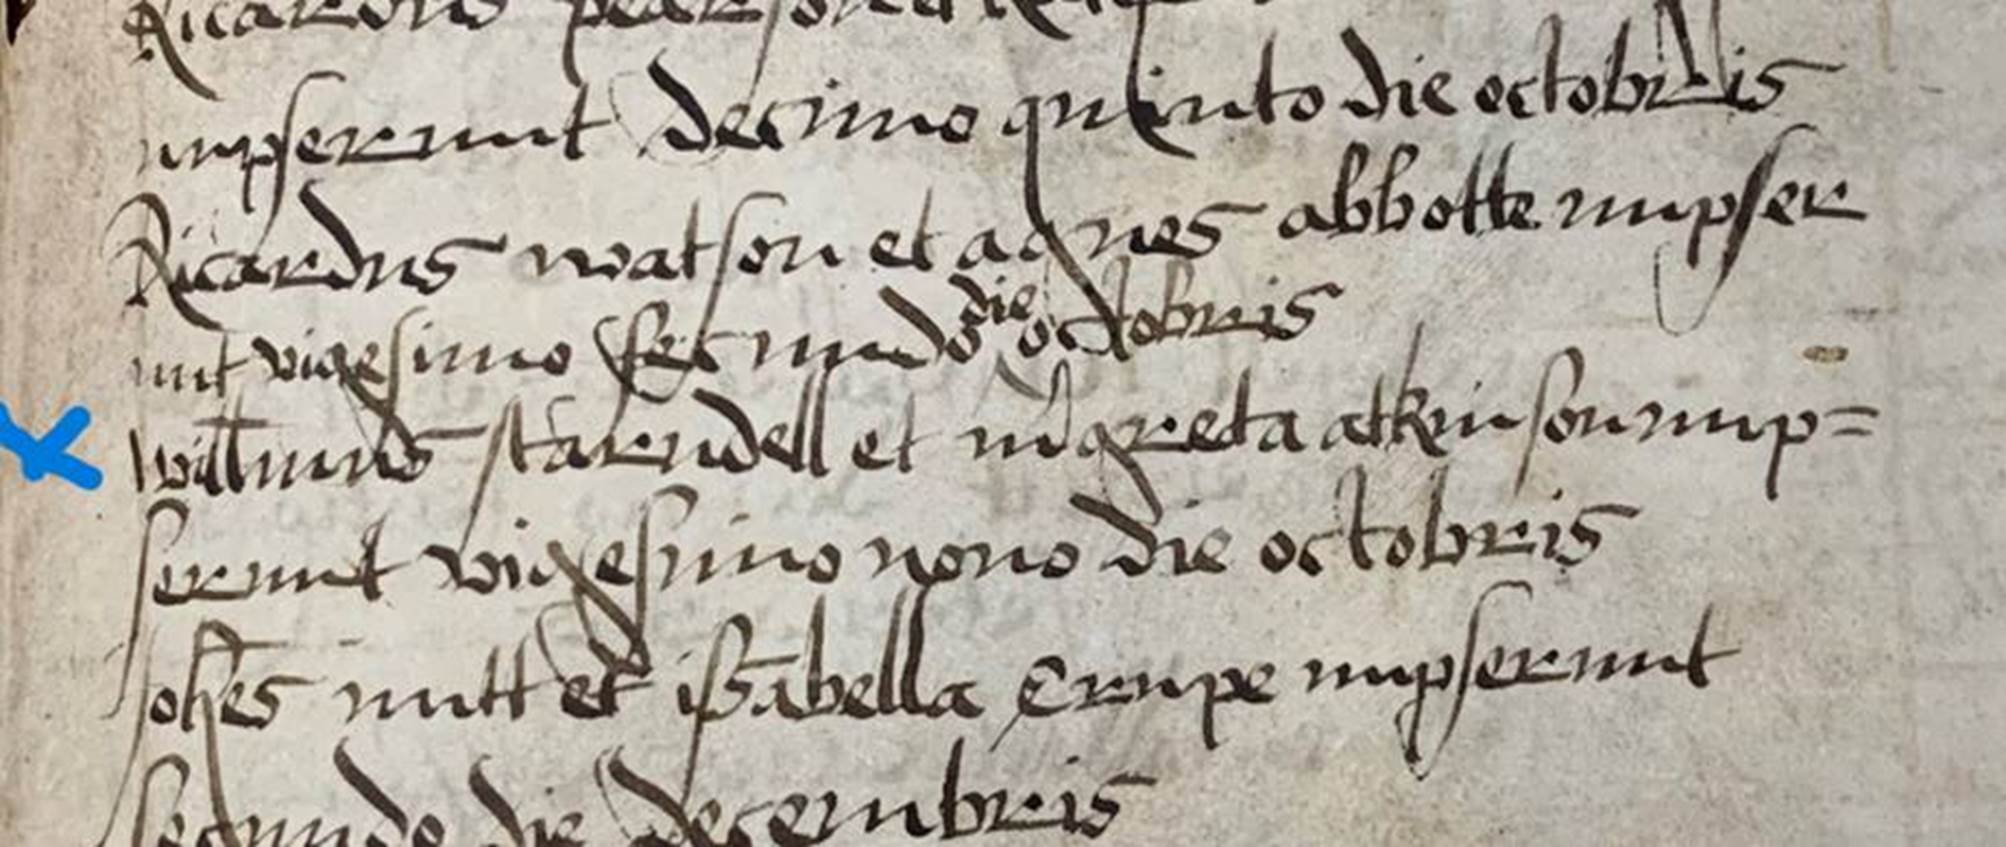 Ricardus pearson et
nupserunt decimo quinto die octobris
Ricardus watson et agnes abbotte nupser
unt vigesimo secundo die octobris
willmus starndell et mgreta atkinson nup=
serunt vigesimo nono die octobris
Johes nutt et isabella Crupe nupserunt
secundo die decembris